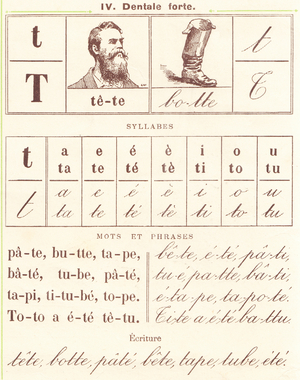 IV. Dentale forte.
t t
T T
tê-te bo-tte
SYLLABES
t a e é è i o u
ta te té tè ti to tu
t a e é è i o u
ta te té tè ti to tu
MOTS ET PHRASES
pâ-te, bu-tte, ta-pe, bê-te, é-té, pâ-ti,
bâ-té, tu-be, pâ-té, tu-é pa-tte, bâ-ti,
ta-pi, ti-tu-bé, to-pe. é-ta-pe, ta-po-té.
To-to a é-té tê-tu. Ti-te a é-té ba-ttu.
Écriture
tête, botte, pâté, bête, tape, tube, été.